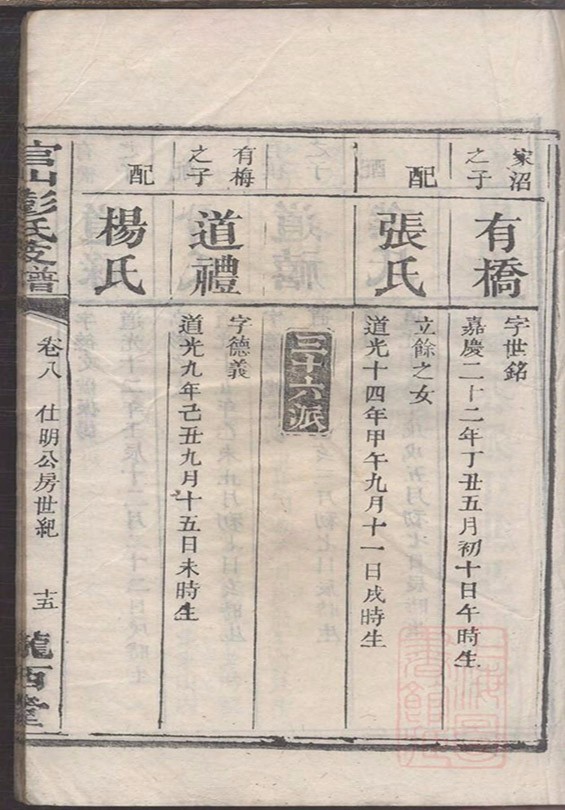 家沼之子
有橋
字世銘
嘉慶二十二年丁丑五月初十日午時生
配
張氏
立餘之女
道光十四年甲午九月十一日戌時生
三十六派
有梅之子
道禮
字德義
道光九年己丑九月十五日未時生
配
楊氏
官山彭氏支譜
卷八 仕明公房世紀 十五
隴西堂